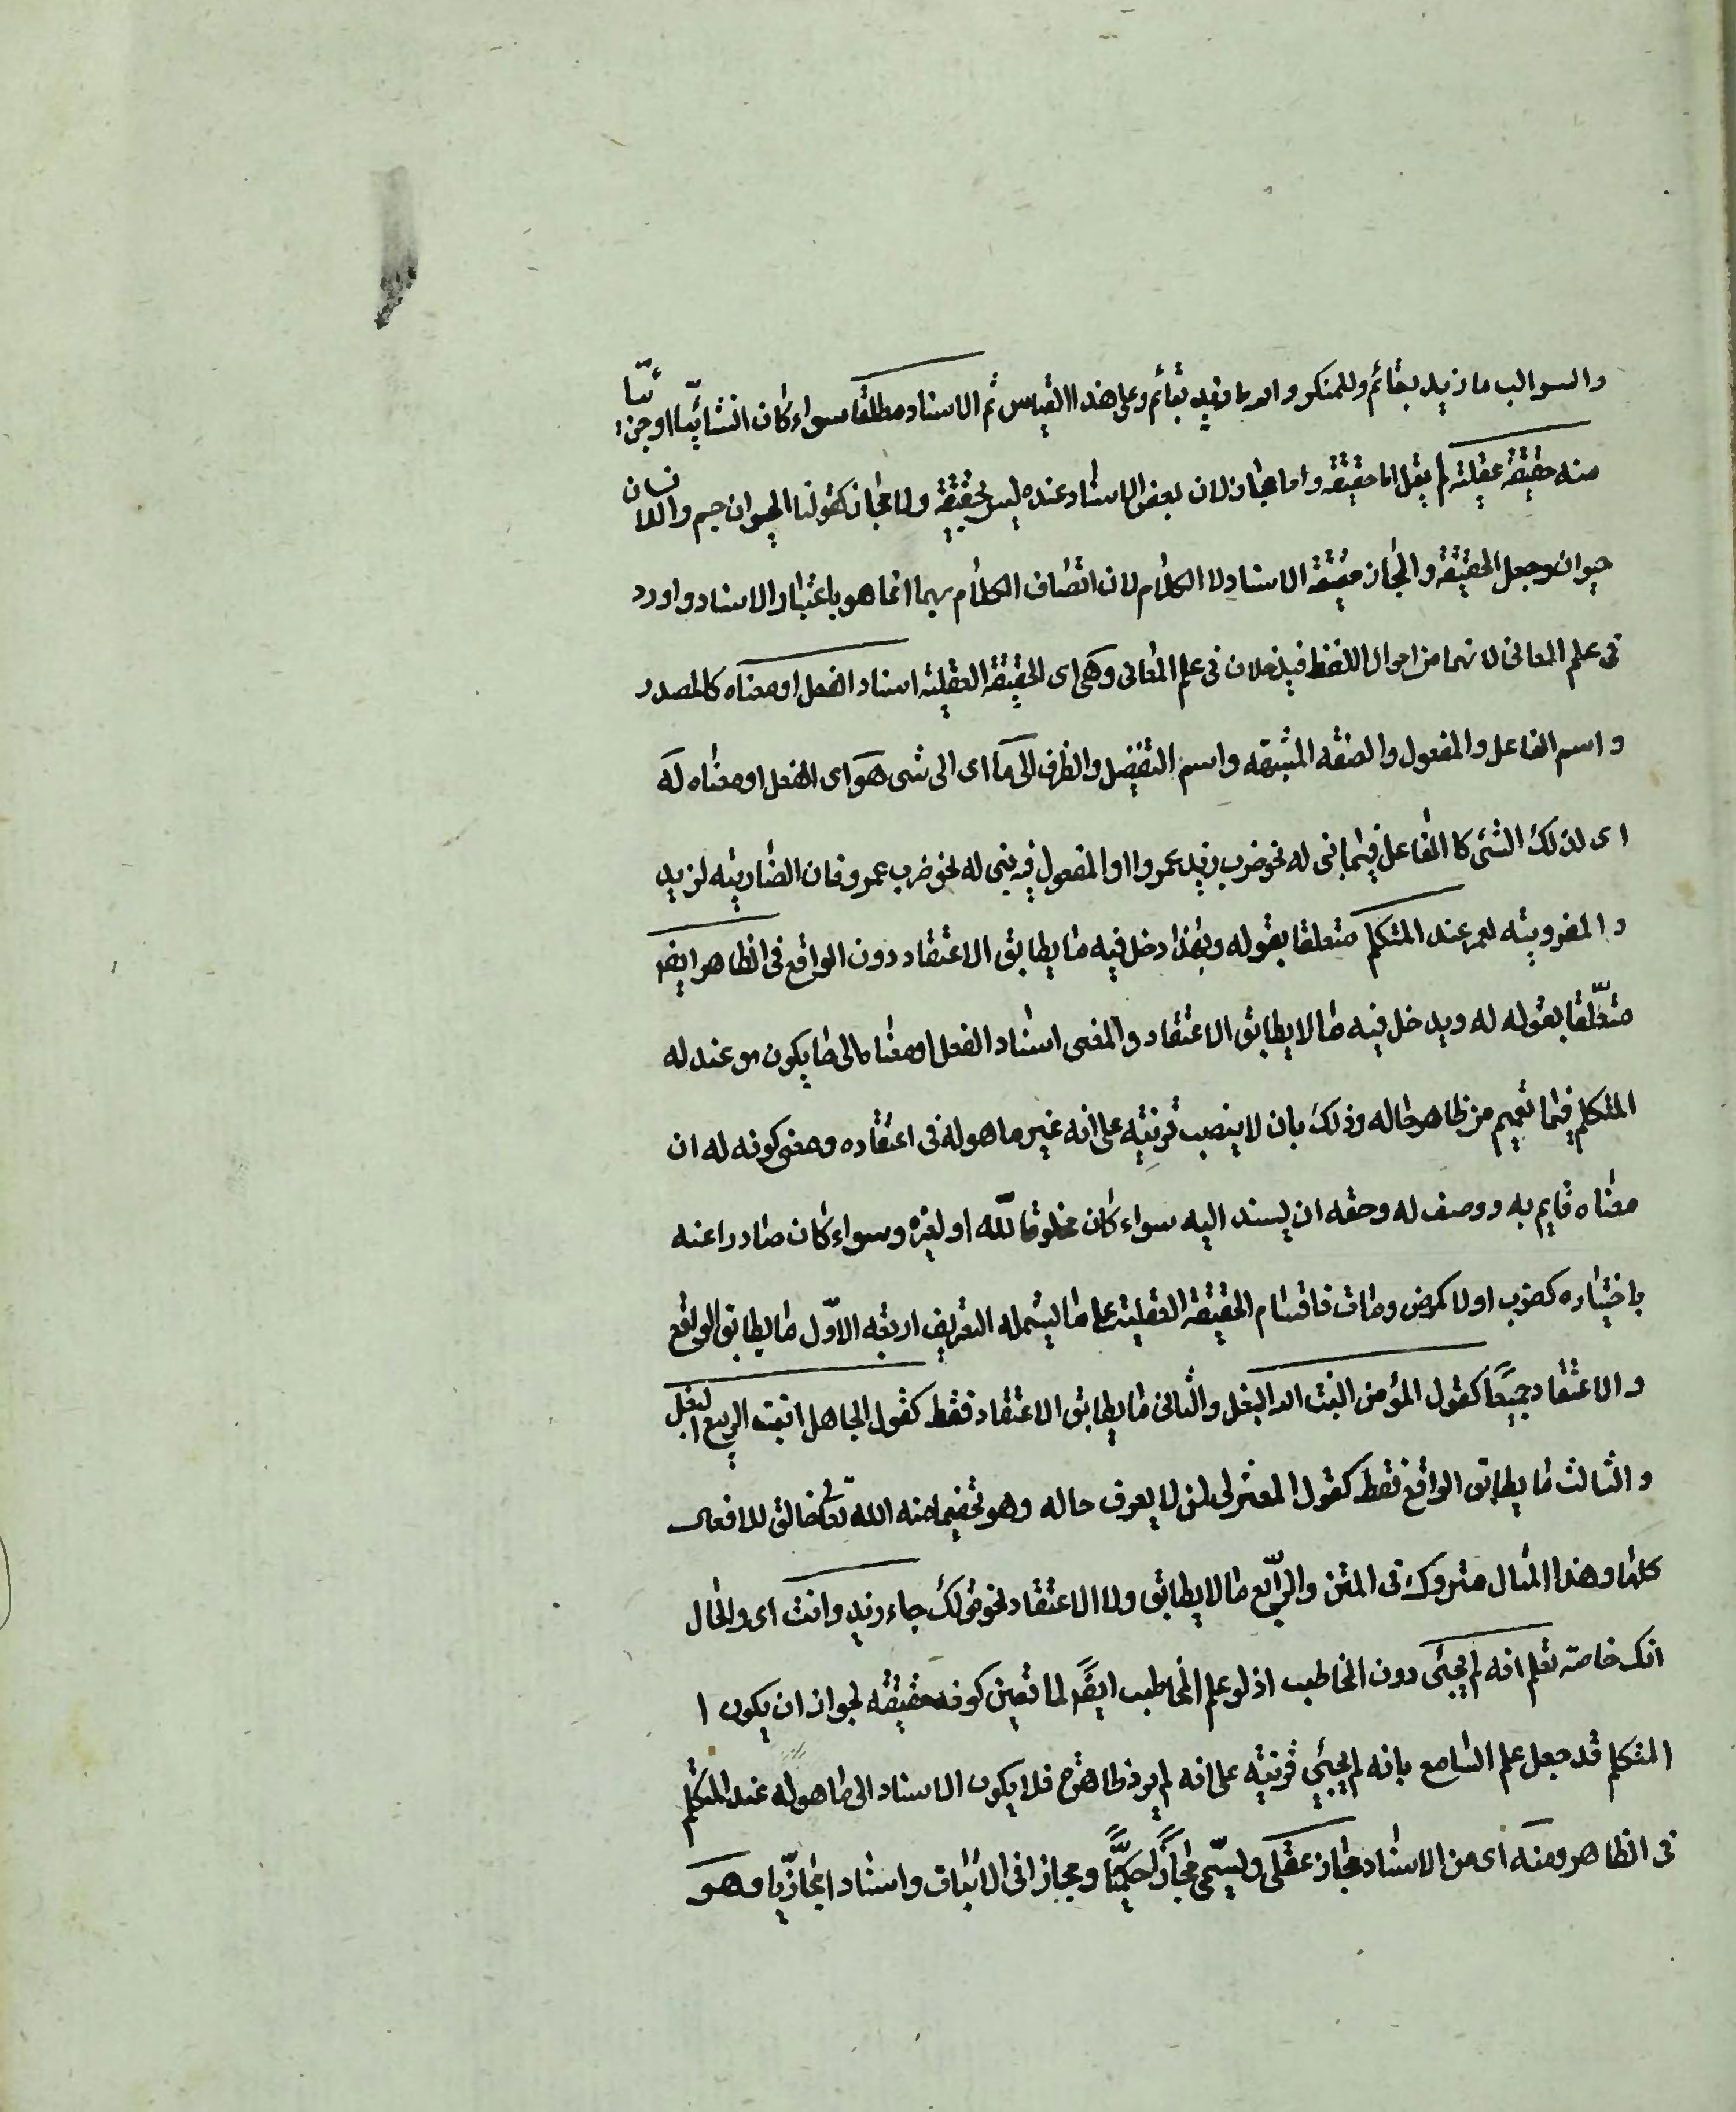 والسوالب ما زيد بقائم وللمنكر والله ما زيد بقائم وعلى هذا القياس ثم الاسناد مطلقا سواء كان انشائيا او خبريا
منه حقيقة عقلية لم يقل اما حقيقة واما مجاز لان بعض الاسناد عنده ليس بحقيقة ولا مجاز كقولنا الحيوان جسم والانسان
حيوان وجعل الحقيقة والمجاز صفة الاسناد لا الكلام لان اتصاف الكلام بهما انما هو باعتبار الاسناد واورد
فى علم المعانى لانهما من احوال اللفظ فيدخلان فى علم المعانى وهى اى الحقيقة العقلية اسناد الفعل او معناه كالمصدر
واسم الفاعل والمفعول والصفة المشبهة واسم التفضيل والظرف الى ما اى الى شى هو اى الفعل او معناه له
اى لذلك الشئ كا الفاعل فيما بنى له نحو ضرب زيد عمروا او المفعول فيه بنى له نحو ضرب عمرو فان الضاربية لزيد
والمضروبية لعمر عند المتكلم متعلقا بقوله وبهذا دخل فيه ما يطابق الاعتقاد دون الواقع فى الظاهر ايضا
متعلقا بقوله له ويدخل فيه ما لا يطابق الاعتقاد والمعنى اسناد الفعل او معناه الى ما يكون هو عند له
المتكلم فيما تفهم من ظاهر حاله وذلك بان لا ينصب قرينة على انه غير ما هو له فى اعتقاده ومعنى كونه له ان
معناه قايم به ووصف له وحقه ان يسند اليه سواء كان مخلوقا لله او لغيره وسواء كان صادرا عنه
باختياره كضرب اولا كمرض ومات فاقسام الحقيقة العقلية على ما يشمله التعريف اربعة الاول ما يطابق الواقع
والاعتقاد جميعا كقول المؤمن انبت الله البقل والثانى ما يطابق الاعتقاد فقط كقول الجاهل انبت الربيع البقل
والثالث ما يطابق الواقع فقط كقول المعتزلى لمن لا يعرف حاله وهو تخفيها منه الله تعالى خالق للافعال
كلها وهذا المثال متروك فى المتن والرابع ما لا يطابق ولا الاعتقاد نحو قولك جاء زيد وانت اى والحال
انك خاصة تعلم انه لم يجئ دون المخاطب اذ لو علم المخاطب ايضا لما تعين كونه حقيقة لجواز ان يكون ا
المتكلم قد جعل علم السامع بانه لم يجئ قرينة على انه لم يرد ظاهره فلا يكون الاسناد الى ما هو له عند المتكلم
فى الظاهر ومنه اى من الاسناد مجاز عقلى ويسمى مجازا حكميا ومجازا فى الاثبات واسنادا مجازيا وهو